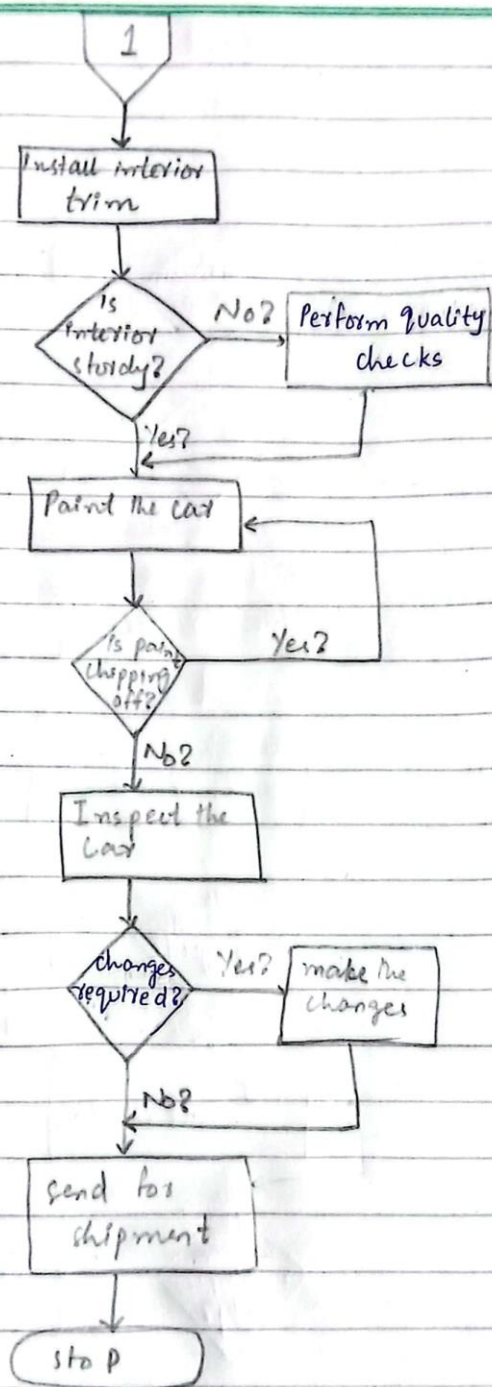 1
Install interior
trim
Is
interior
sturdy?
No?
Perform quality
checks
Yes?
Paint the car
Is paint
chipping
off?
Yes?
No?
Inspect the
car
changes
required?
Yes?
make the
changes
No?
send for
shipment
stop